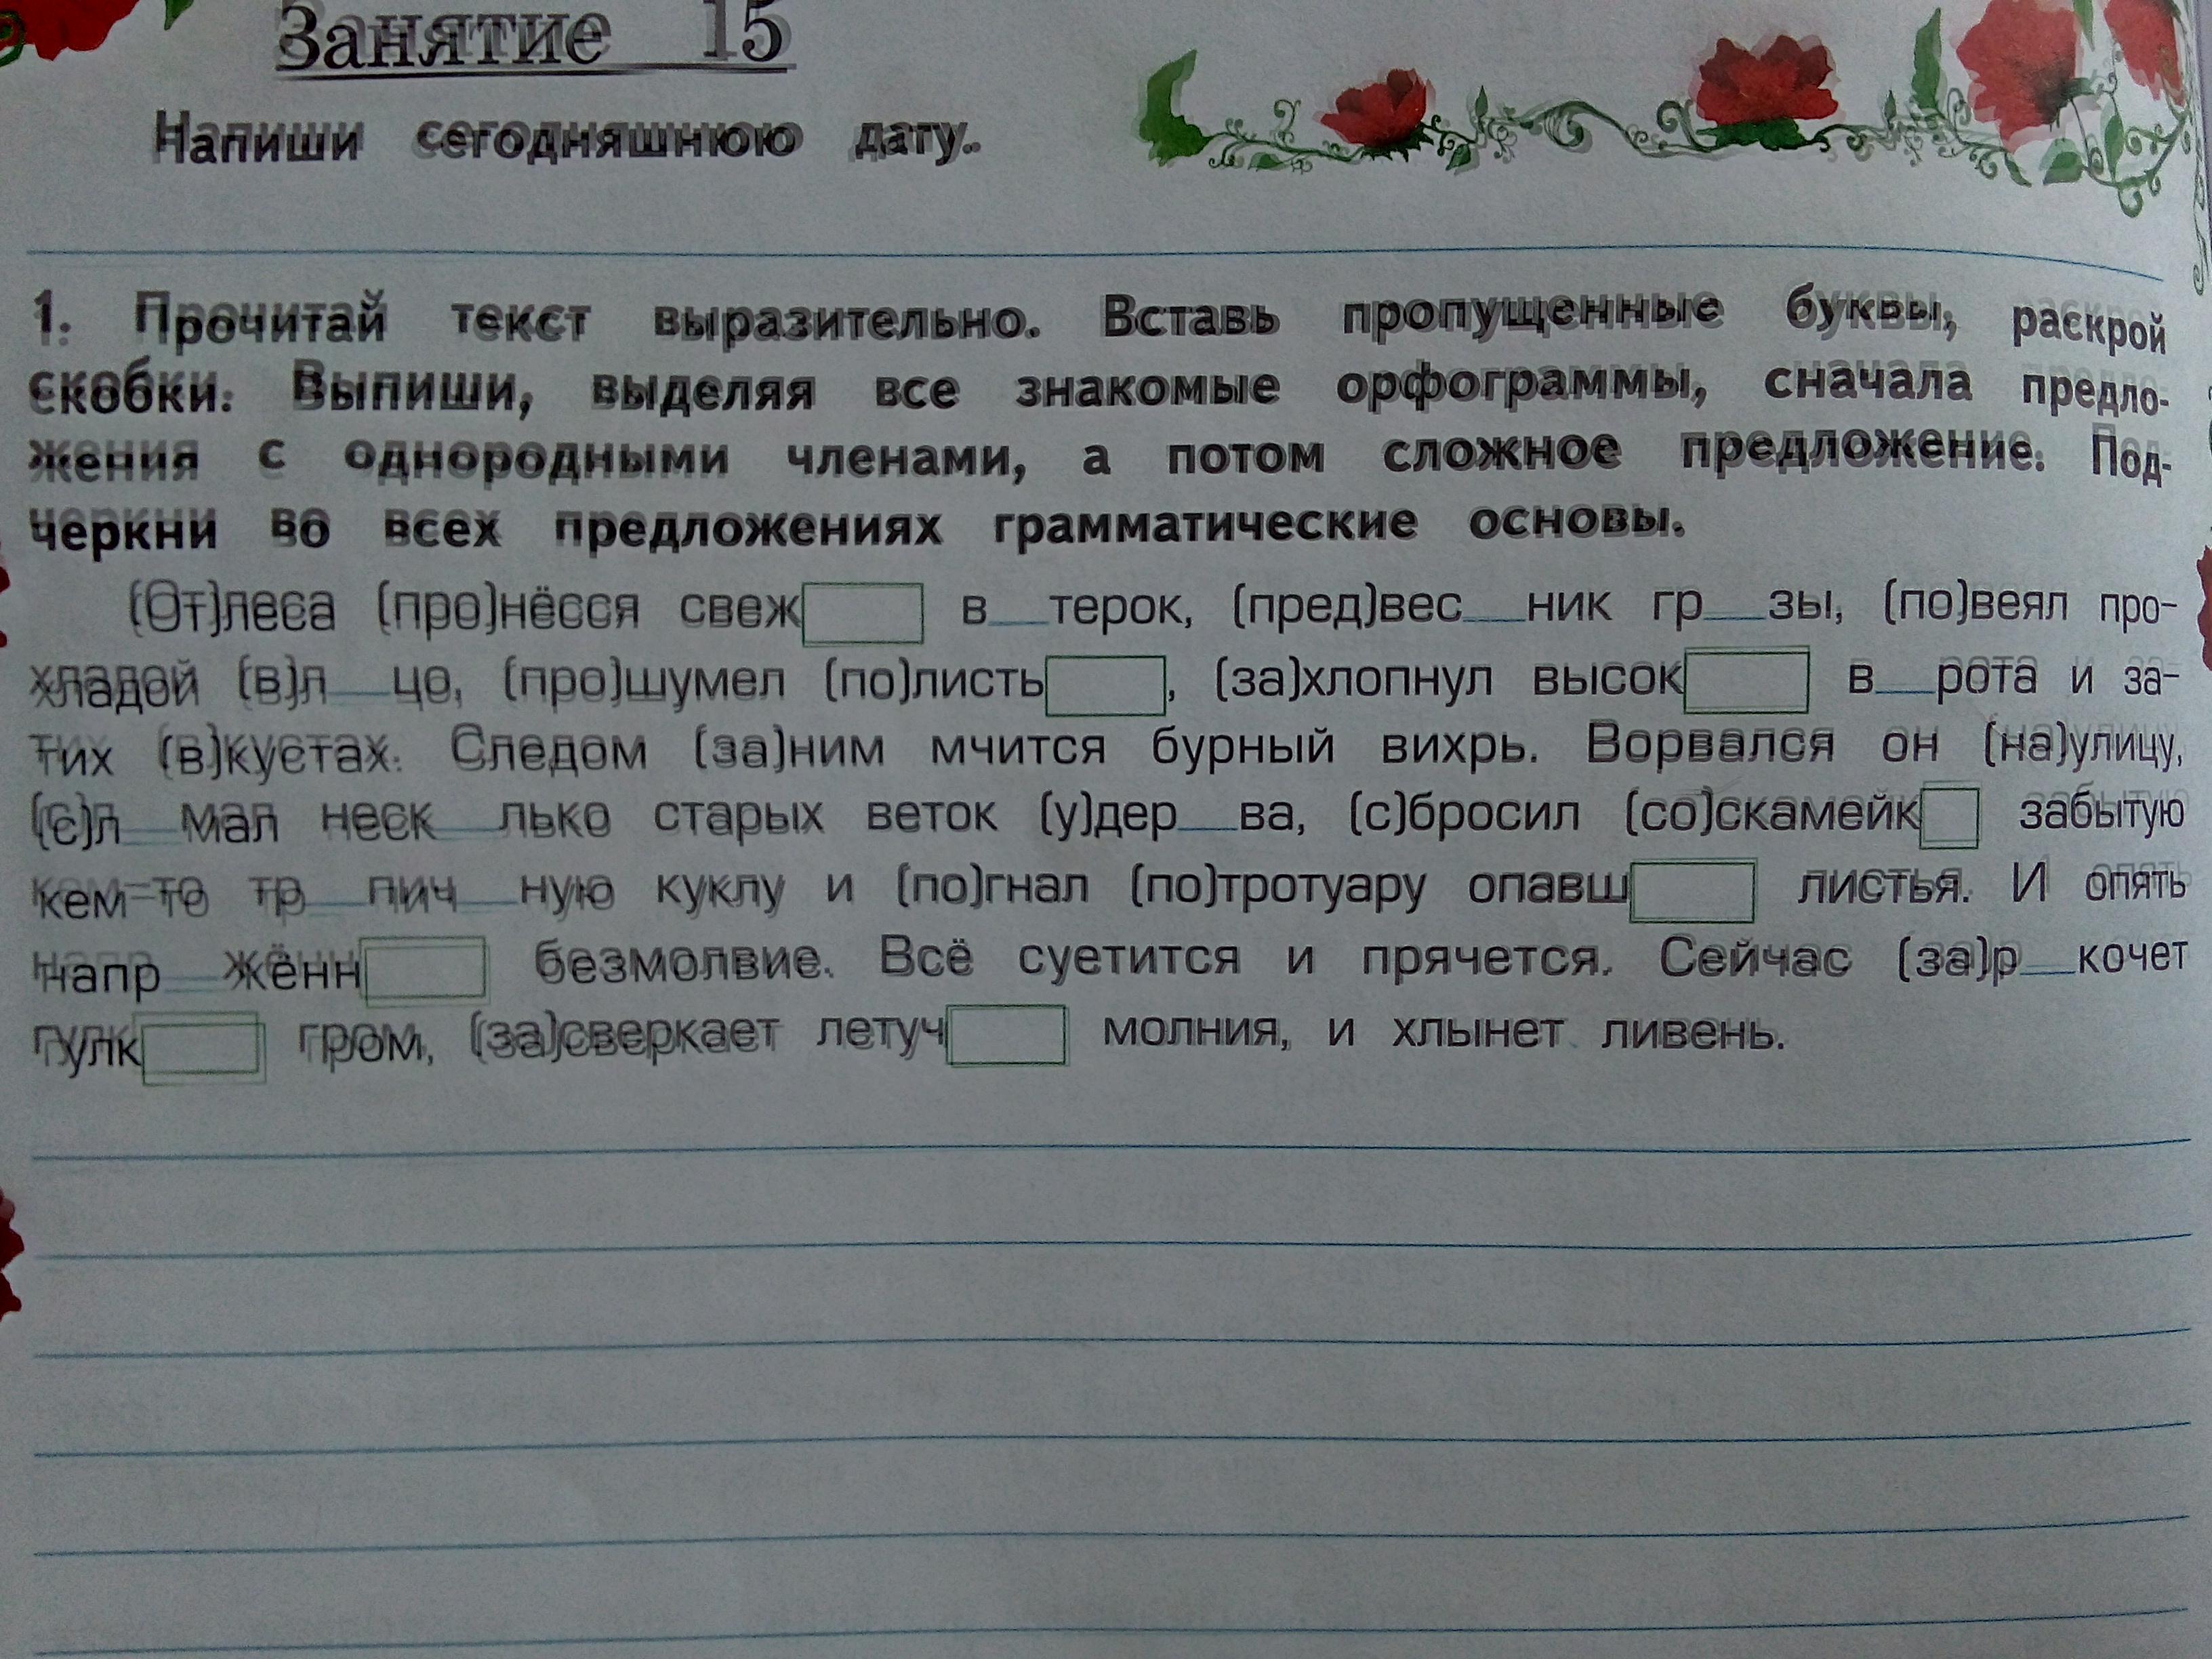 Занятие 15
Напиши сегодняшнюю дату.
1. Прочитай текст выразительно. Вставь пропущенные буквы, раскрой
скобки. Выпиши, выделяя все знакомые орфограммы, сначала предло-
жения с однородными членами, а потом сложное предложение. Под-
черкни во всех предложениях грамматические основы.
(От)леса (про)нёсся свеж в__терок, (пред)вес__ник гр__зы, (по)веял про-
хладой (в)л__цо, (про)шумел (по)листь, (за)хлопнул высок в__рота и за-
тих (в)кустах. Следом (за)ним мчится бурный вихрь. Ворвался он (на)улицу,
(с)л__мал неск__лько старых веток (у)дер__ва, (с)бросил (со)скамейк забытую
кем-то тр__пич__ную куклу и (по)гнал (по)тротуару опавш листья. И опять
напр__жённ безмолвие. Всё суетится и прячется. Сейчас (за)р__кочет
гулк гром, (за)сверкает летуч молния, и хлынет ливень.